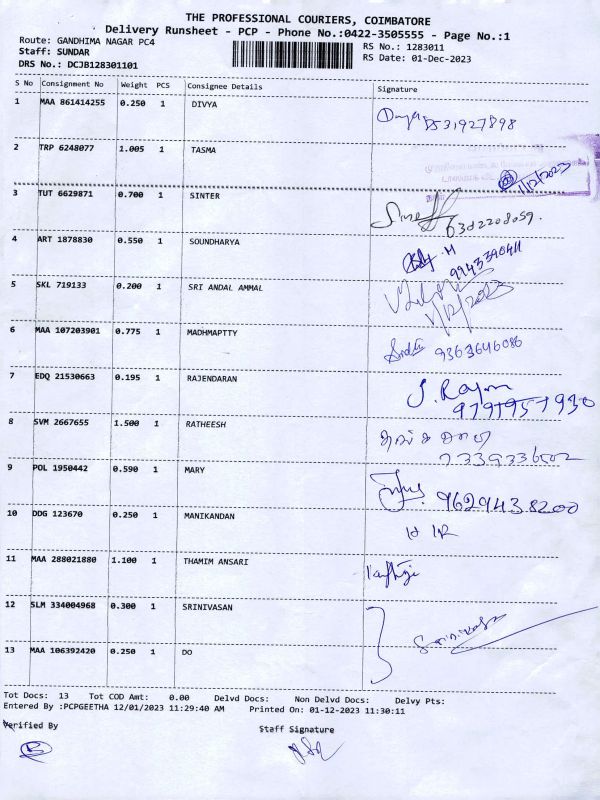 THE PROFESSIONAL COURIERS, COIMBATORE
Delivery Runsheet - PCP - Phone No.:0422-3505555 - Page No.:1
Route: GANDHIMA NAGAR PC4 RS No.: 1283011
Staff: SUNDAR RS Date: 01-Dec-2023
DRS No.: DCJB128301101
S No Consignment No Weight PCS Consignee Details Signature
1 MAA 861414255 0.250 1 DIVYA Divya 8531927898
2 TRP 6248077 1.005 1 TASMA 1/12/2023
3 TUT 6629871 0.700 1 SINTER 6382208059.
4 ART 1878830 0.550 1 SOUNDHARYA 9943390411
5 SKL 719133 0.200 1 SRI ANDAL AMMAL 1/12/2023
6 MAA 107203901 0.775 1 MADHMAPTTY 9363646086
7 EDQ 21530663 0.195 1 RAJENDARAN
8 SVM 2667655 1.500 1 RATHEESH
9 POL 1950442 0.590 1 MARY 9629438200
10 DDG 123670 0.250 1 MANIKANDAN
11 MAA 288021880 1.100 1 THAMIM ANSARI
12 SLM 334004968 0.300 1 SRINIVASAN Srinivasan
13 MAA 106392420 0.250 1 DO
Tot Docs: 13 Tot COD Amt: 0.00 Delvd Docs: Non Delvd Docs: Delvy Pts:
Entered By :PCPGEETHA 12/01/2023 11:29:40 AM Printed On: 01-12-2023 11:30:11
Verified By Staff Signature